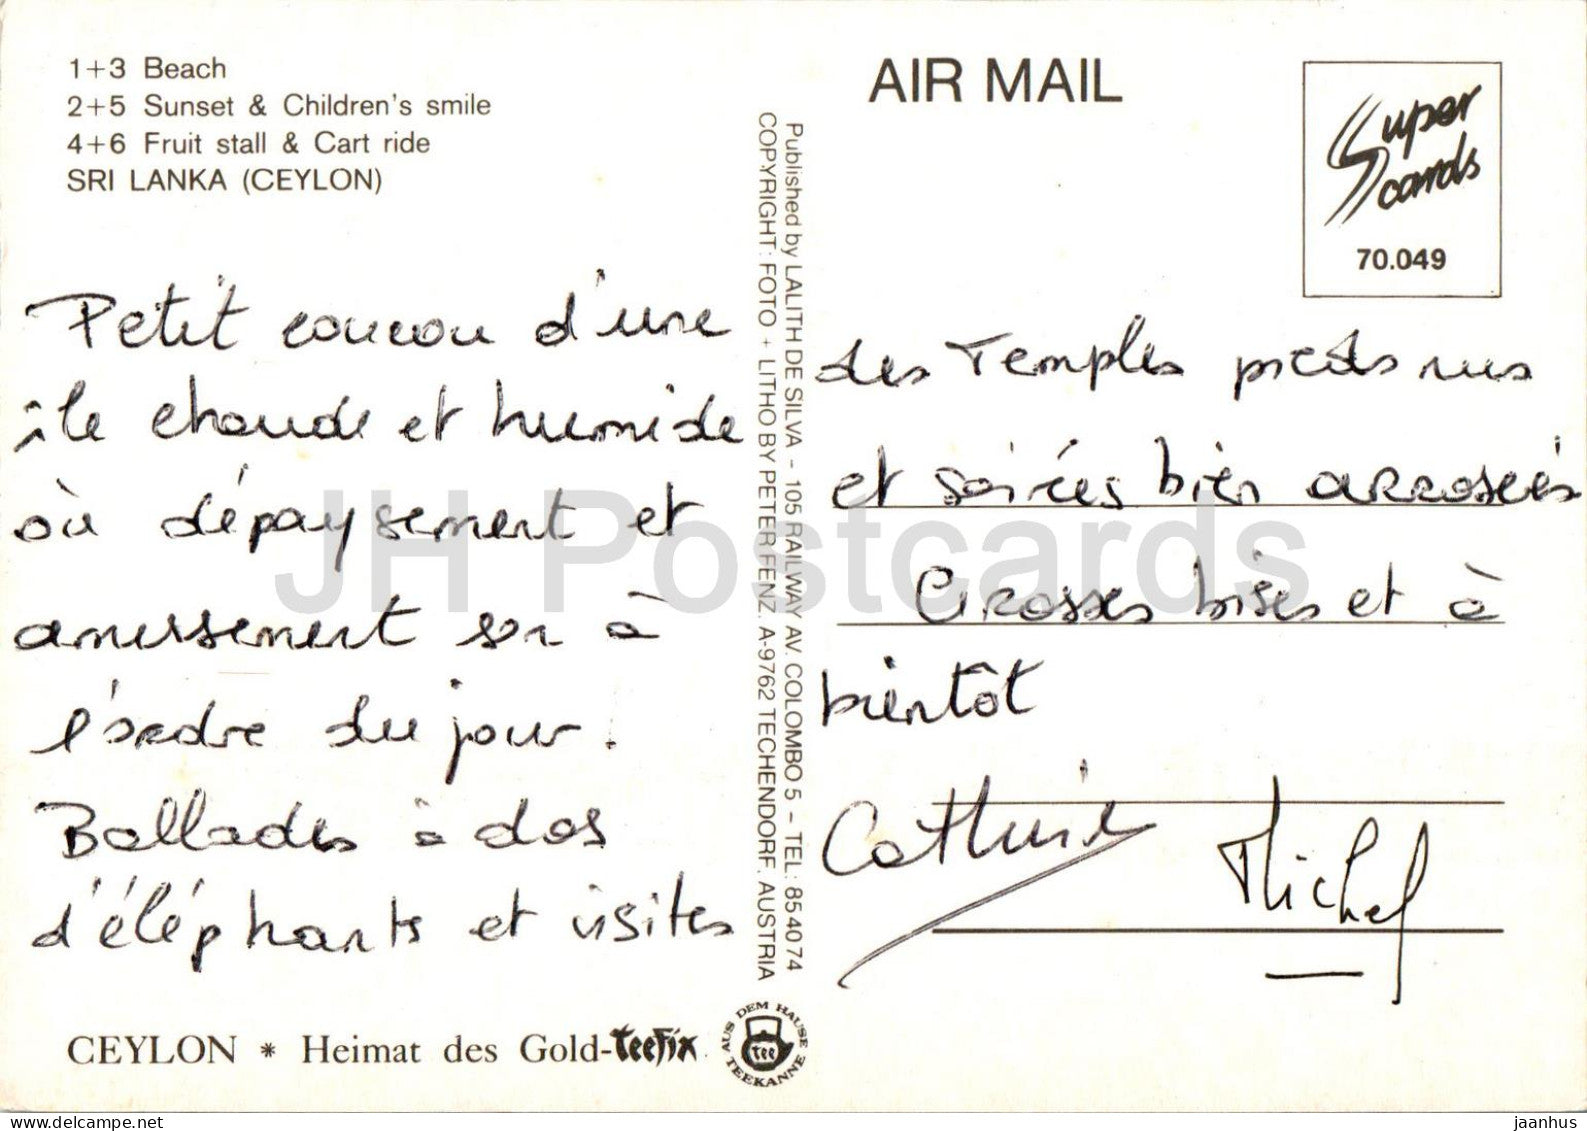 1+3 Beach
2+5 Sunset & Children's smile
4+6 Fruit stall & Cart ride
SRI LANKA (CEYLON)
Petit coucou d'une
île chaude et humide
où dépaysement et
amusement son à
l'ordre du jour.
Ballades à dos
d'éléphants et visites
CEYLON * Heimat des Gold-Teefix
AUS DEM HAUSE TEEKANNE
Tee
Published by LALITH DE SILVA - 105 RAILWAY AV. COLOMBO 5 - TEL: 854074
COPYRIGHT: FOTO + LITHO BY PETER FENZ. A-9762 TECHENDORF. AUSTRIA
AIR MAIL
Super
cards
70.049
des Temples pieds nus
et soirées bien arrosées
Grosses bises et à
bientôt
Catherine
Michel
JH Postcards
jaanhus | HipPostcard.com